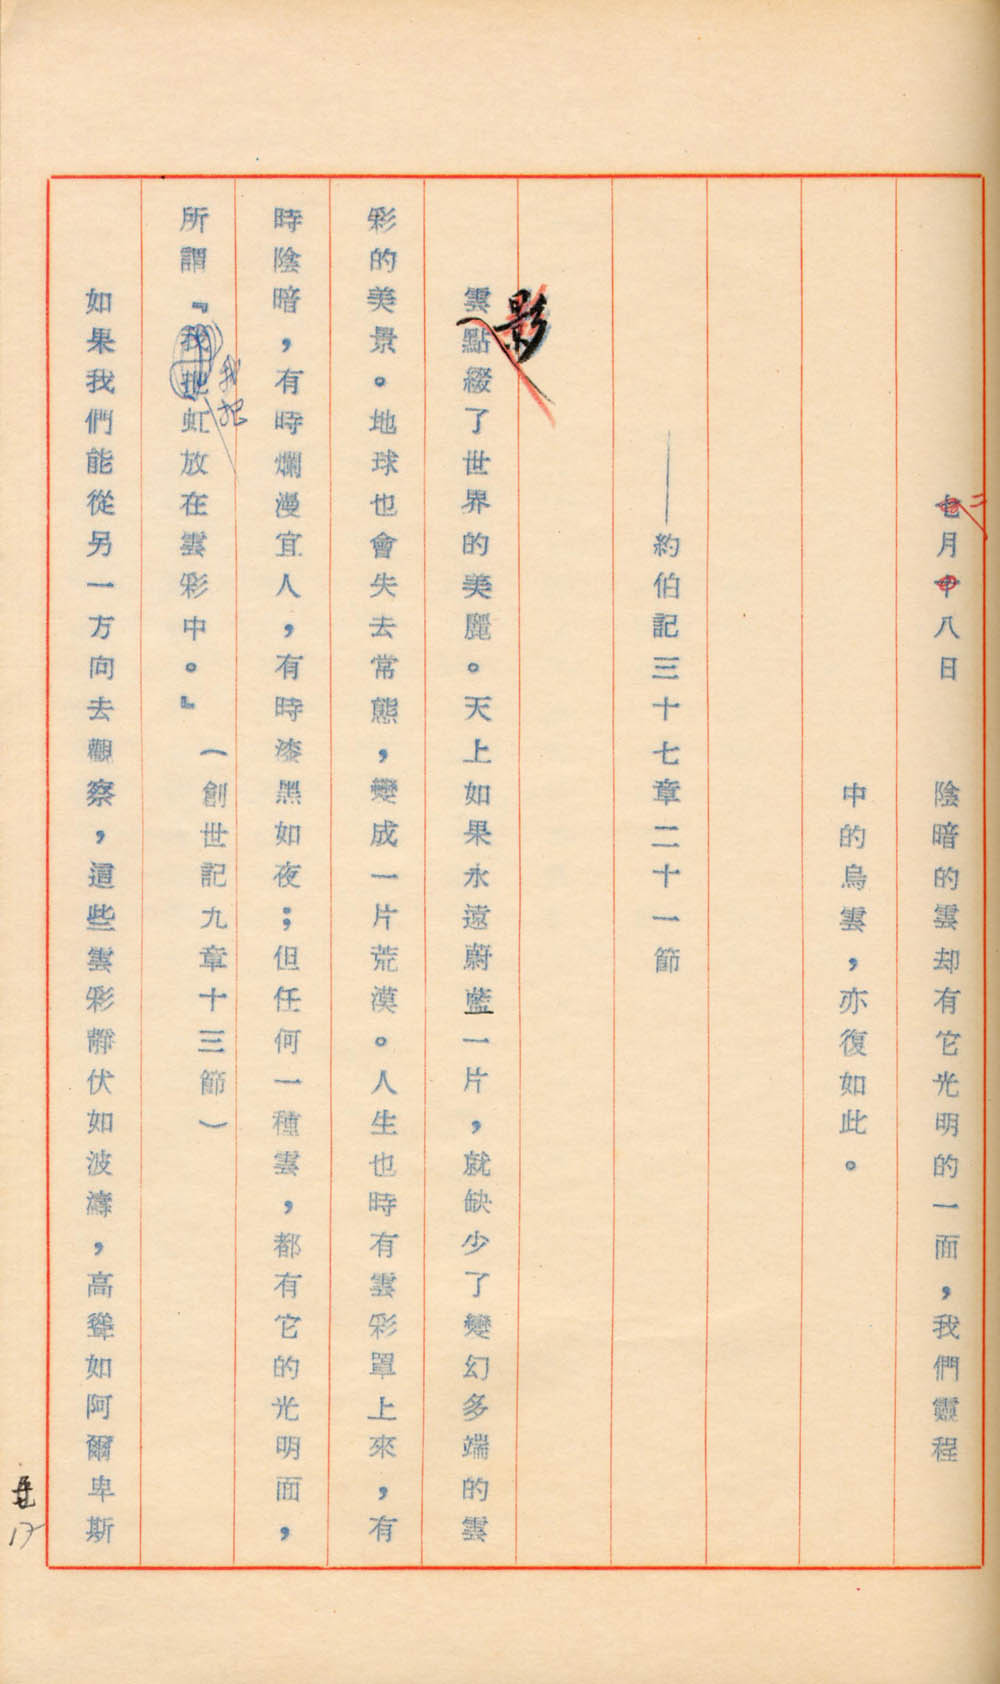 七月十八日　　陰暗的雲却有它光明的一面，我們靈程
二
中的烏雲，亦復如此。
——約伯記三十七章二十一節
影
雲點綴了世界的美麗。天上如果永遠蔚藍一片，就缺少了變幻多端的雲
彩的美景。地球也會失去常態，變成一片荒漠。人生也時有雲彩罩上來，有
時陰暗，有時爛漫宜人，有時漆黑如夜；但任何一種雲，都有它的光明面，
所謂『我把虹放在雲彩中。』（創世記九章十三節）
我把
如果我們能從另一方向去觀察，這些雲彩靜伏如波濤，高聳如阿爾卑斯
17